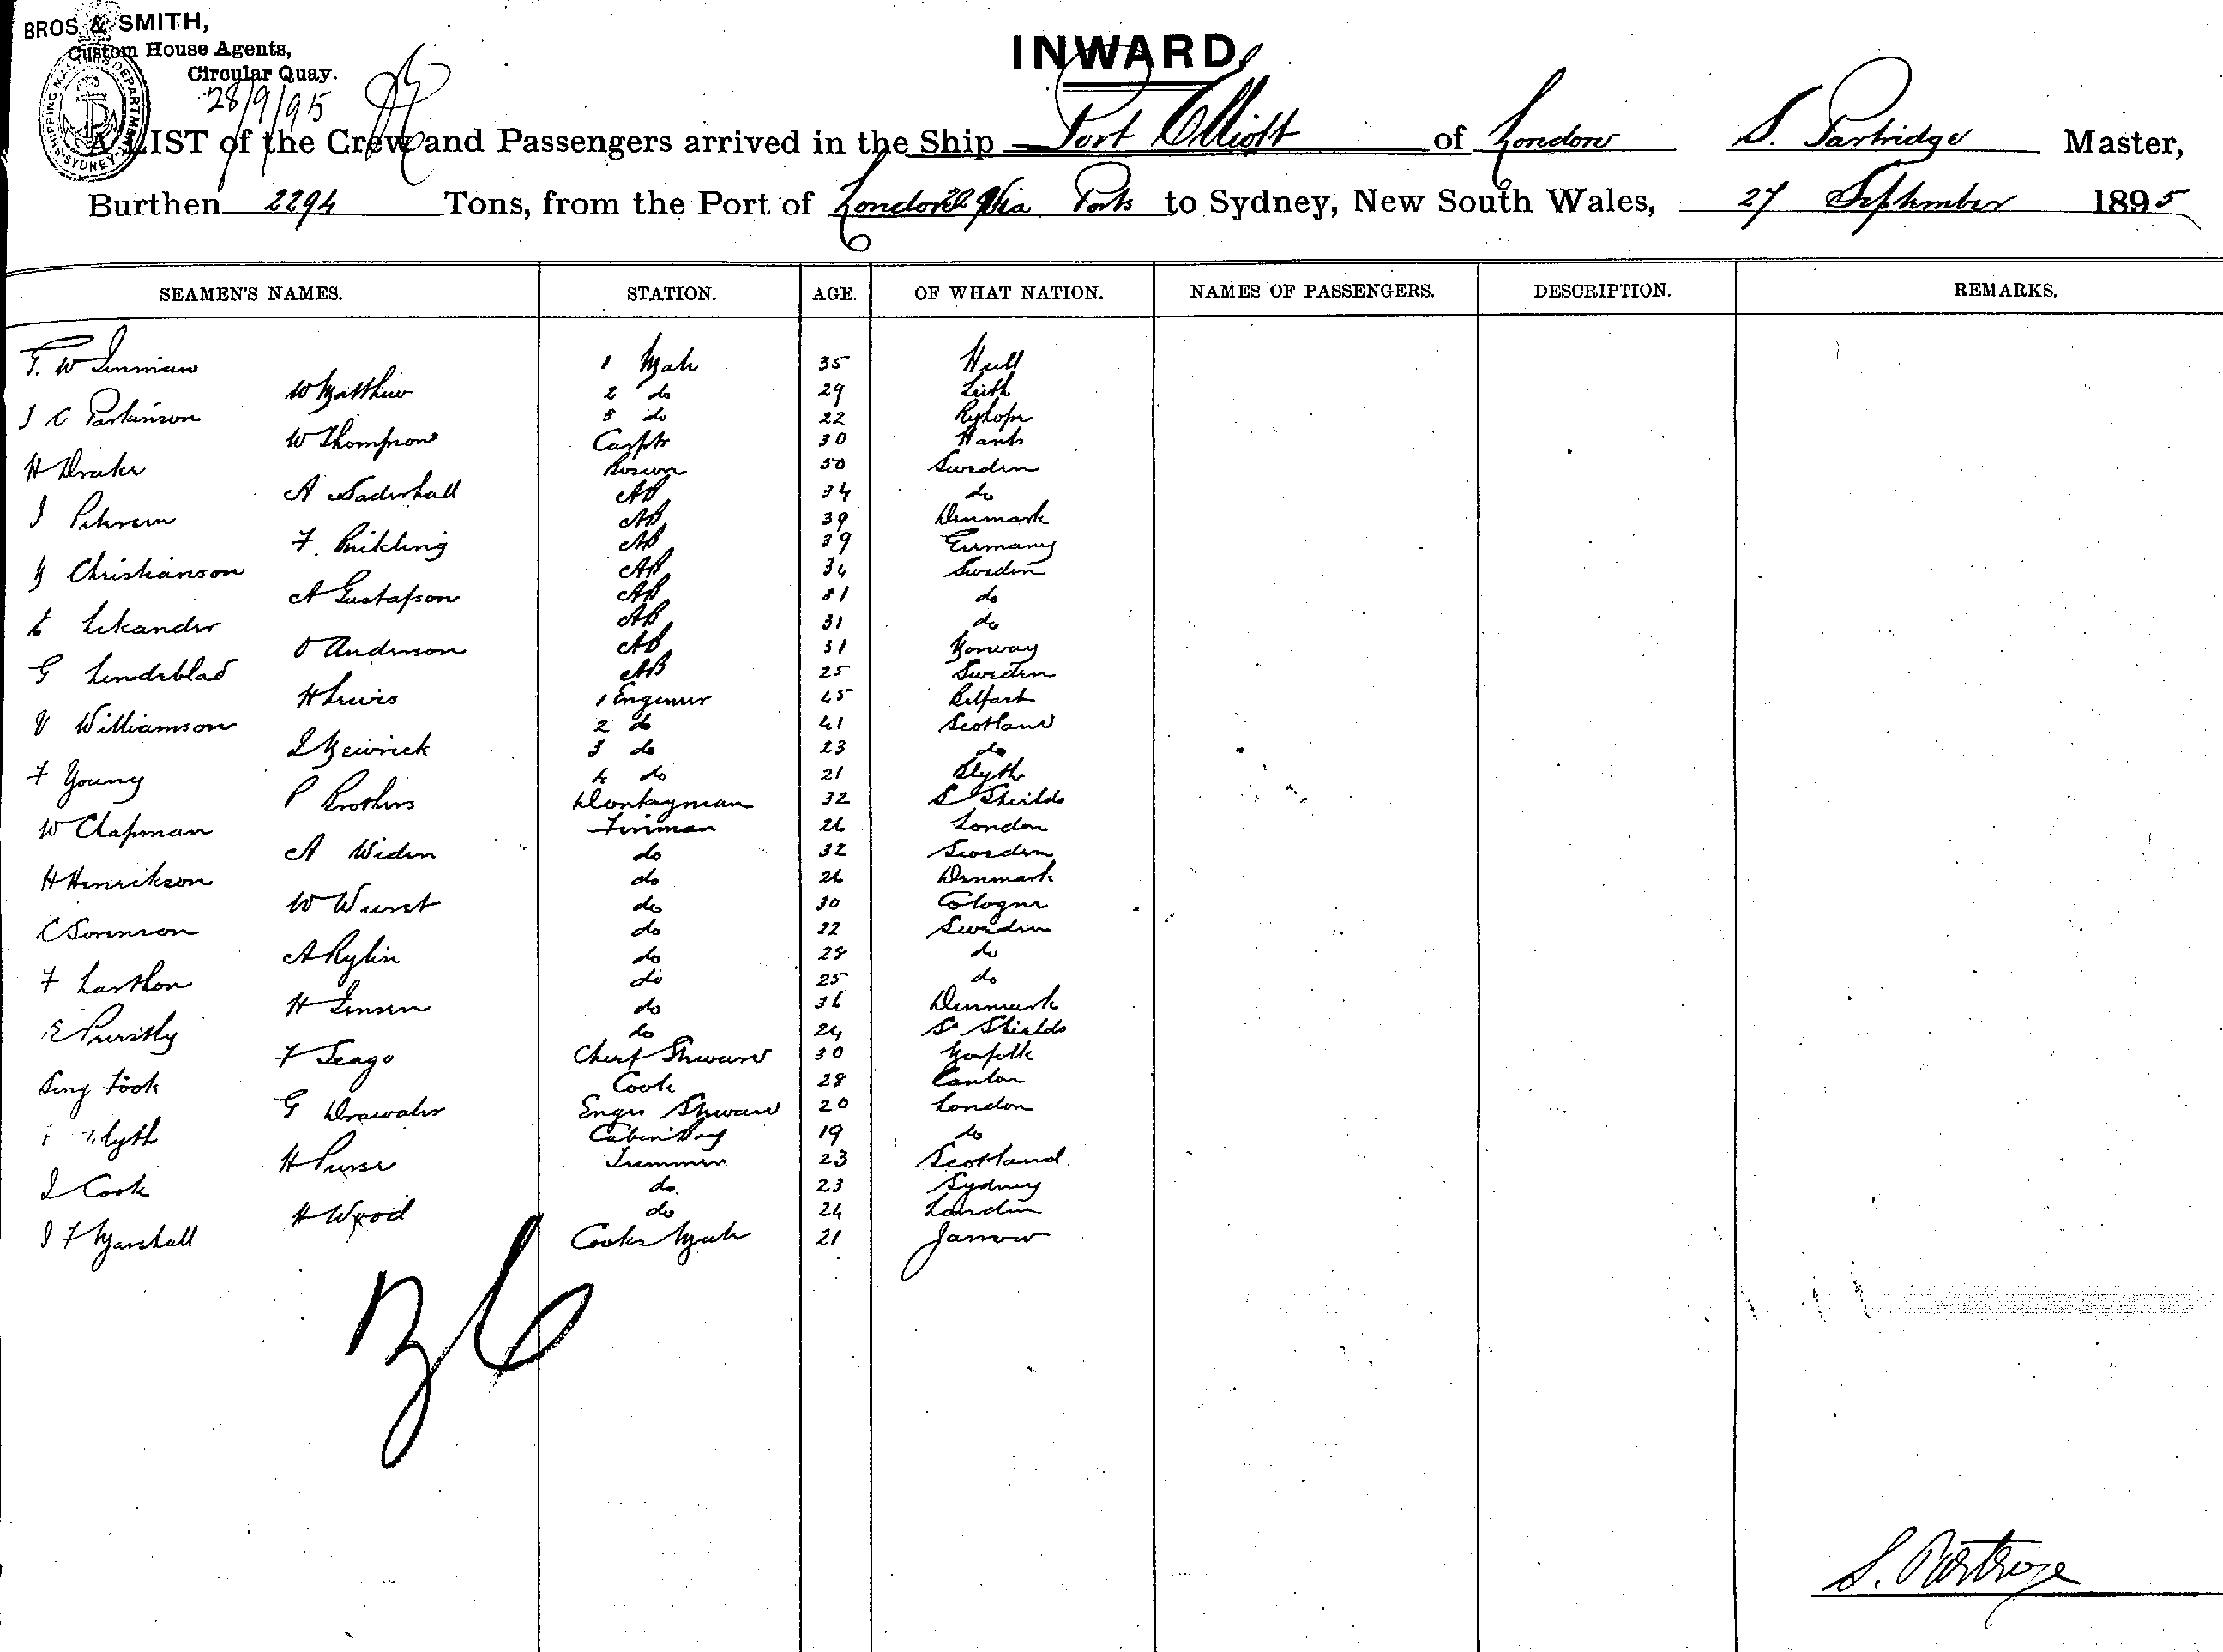 BROS & SMITH,
Custom House Agents,
Circular Quay.
28/9/95
INWARD
A LIST of the Crew and Passengers arrived in the Ship Port Elliott of London S. Partridge Master,
Burthen 2294 Tons, from the Port of London Via Ports to Sydney, New South Wales, 27 September 1895
SEAMEN'S NAMES. STATION. AGE. OF WHAT NATION. NAMES OF PASSENGERS. DESCRIPTION. REMARKS.
W 1 Mate 35 Hull
W Matthew 2 do 29 Leith
J C Parkinson 3 do 22 Ryhope
W Thompson Carptr 30 Hants
H Drake Bosun 50 Sweden
A AB 34 do
J AB 39 Denmark
F. AB 39 Germany
N Christianson AB 34 Sweden
A Gustafson AB 31 do
AB 31 do
O Anderson AB 31 Norway
G Lindeblad AB 25 Sweden
H Lewis 1 Engineer 45 Belfast
V Williamson 2 do 41 Scotland
3 do 23 do
F Young 4 do 21 Blyth
P Brothers Donkeyman 32 S Shields
W Chapman Fireman 26 London
A Widen do 32 Sweden
H Henrikson do 26 Denmark
W Wurst do 30 Cologne
C Sorenson do 22 Sweden
A Rylin do 28 do
F do 25 do
H Jensen do 36 Denmark
E do 24 So Shields
F Seago Chief Steward 30 Norfolk
Sing Fook Cook 28 Canton
G Drawater Engrs Steward 20 London
Blyth Cabin Boy 19 do
H Purse Trimmer 23 Scotland
J Cook do 23 Sydney
H Wood do 24 London
J F Marshall Cooks Mate 21 Jarrow
S. Partridge